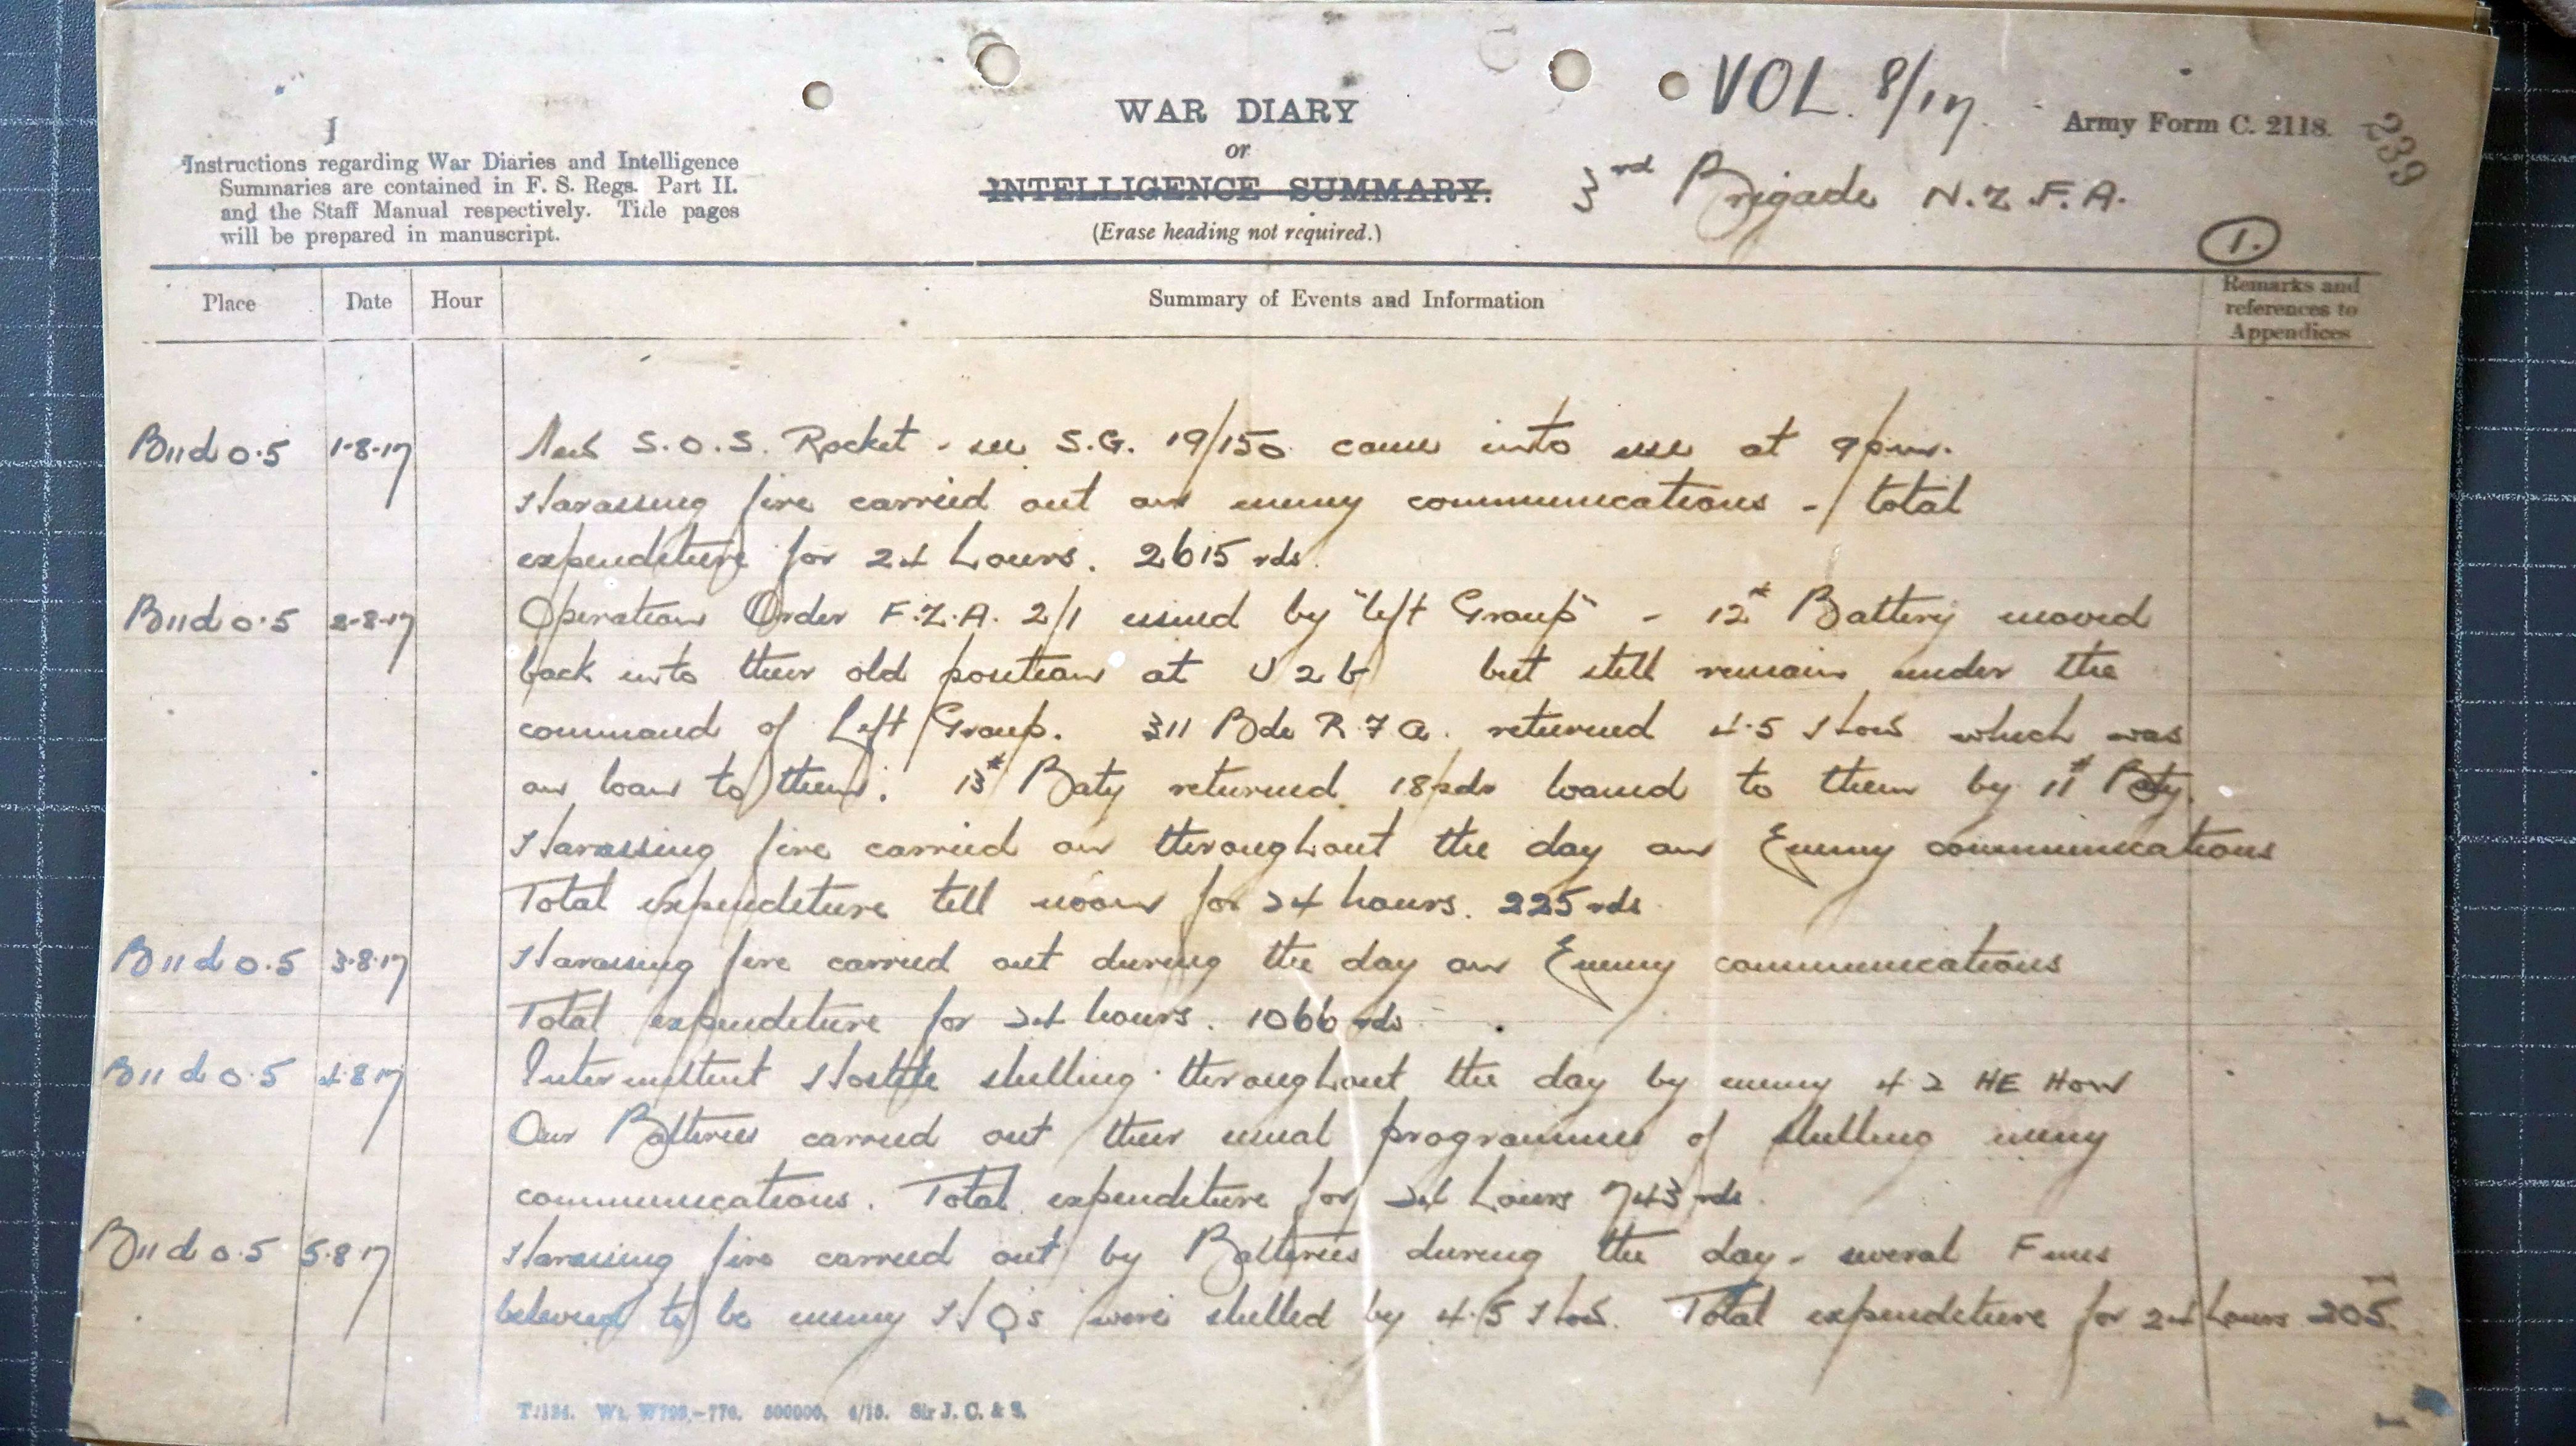 VOL. 8/17.
Army Form C. 2118.
239
WAR DIARY
or
INTELLIGENCE SUMMARY.
(Erase heading not required.)
3rd Brigade N.Z.F.A.
1.
Instructions regarding War Diaries and Intelligence
Summaries are contained in F. S. Regs. Part II.
and the Staff Manual respectively. Title pages
will be prepared in manuscript.
Place Date Hour Summary of Events and Information Remarks and
references to
Appendices
B11d 0.5 1-8-17 New S.O.S. Rocket - see S.G. 19/150 came into use at 9pm.
Harassing fire carried out on enemy communications - total
expenditure for 24 hours. 2615 rds.
B11d 0.5 2-8-17 Operation Order F.Z.A. 2/1 issued by "Left Group" - 12th Battery moved
back into their old position at U2b but still remain under the
command of Left Group. 311 Bde R.F.A. returned 4.5 How which was
on loan to them. 13th Baty returned 18pdr loaned to them by 11th Baty.
Harassing fire carried on throughout the day on Enemy communications
Total expenditure till noon for 24 hours. 225 rds
B11d 0.5 3-8-17 Harassing fire carried out during the day on Enemy communications
Total expenditure for 24 hours. 1066 rds
B11d 0.5 4.8.17 Intermittent Hostile shelling throughout the day by enemy 4.2 HE How
Our Batteries carried out their usual programmes of shelling enemy
communications. Total expenditure for 24 hours 743 rds.
B11d 0.5 5.8.17 Harassing fire carried out by Batteries during the day - several Fmes
believed to be enemy HQs were shelled by 4.5 How. Total expenditure for 24 hours 205.
Wt. W708.-776. 500000. 4/15. Sir J. C. & S.